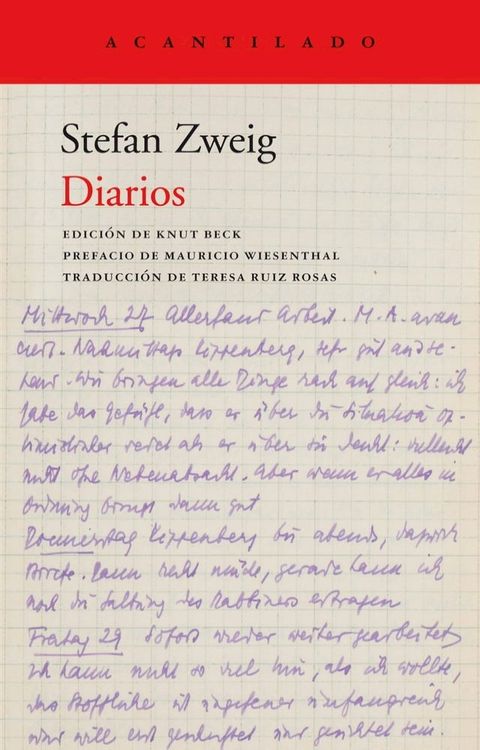 ACANTILADO
Stefan Zweig
Diarios
EDICIÓN DE KNUT BECK
PREFACIO DE MAURICIO WIESENTHAL
TRADUCCIÓN DE TERESA RUIZ ROSAS
Mittwoch 27 Allerhand Arbeit. M. A. avan
ciert. Nachmittags Kippenberg, sehr gut ausse-
hend. Wir bringen alle Dinge rasch auf gleich: ich
habe das Gefühl, dass er über die Situation op-
timistischer redet als er über sie denkt: vielleicht
nicht ohne Nebenabsicht. Aber wenn er alles in
Ordnung bringt dann gut
Donnerstag Kippenberg bis abends,
Briefe. Dann recht müde, gerade kann ich
noch die des Rabbiners ertragen
Freitag 29 Sofort wieder weiter gearbeitet
Ich kann nicht so viel thun, als ich wollte,
das Stoffliche ist ungeheuer umfangreich
und will erst gesichtet sein.